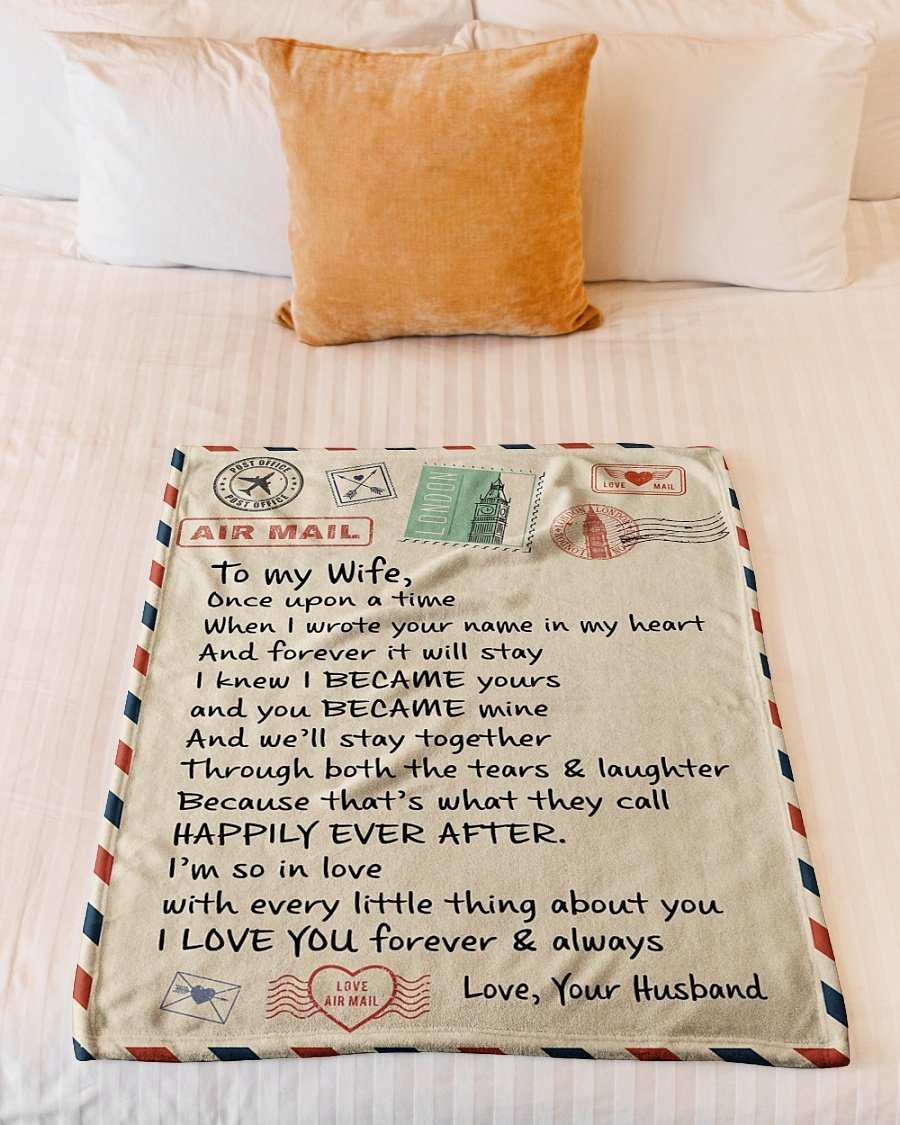 POST OFFICE
POST OFFICE
LONDON
LOVE MAIL
AIR MAIL
LONDON LONDON LONDON
To my Wife,
Once upon a time
When I wrote your name in my heart
And forever it will stay
I knew I BECAME yours
and you BECAME mine
And we'll stay together
Through both the tears & laughter
Because that's what they call
HAPPILY EVER AFTER.
I'm so in love
with every little thing about you
I LOVE YOU forever & always
LOVE
AIR MAIL
Love, Your Husband